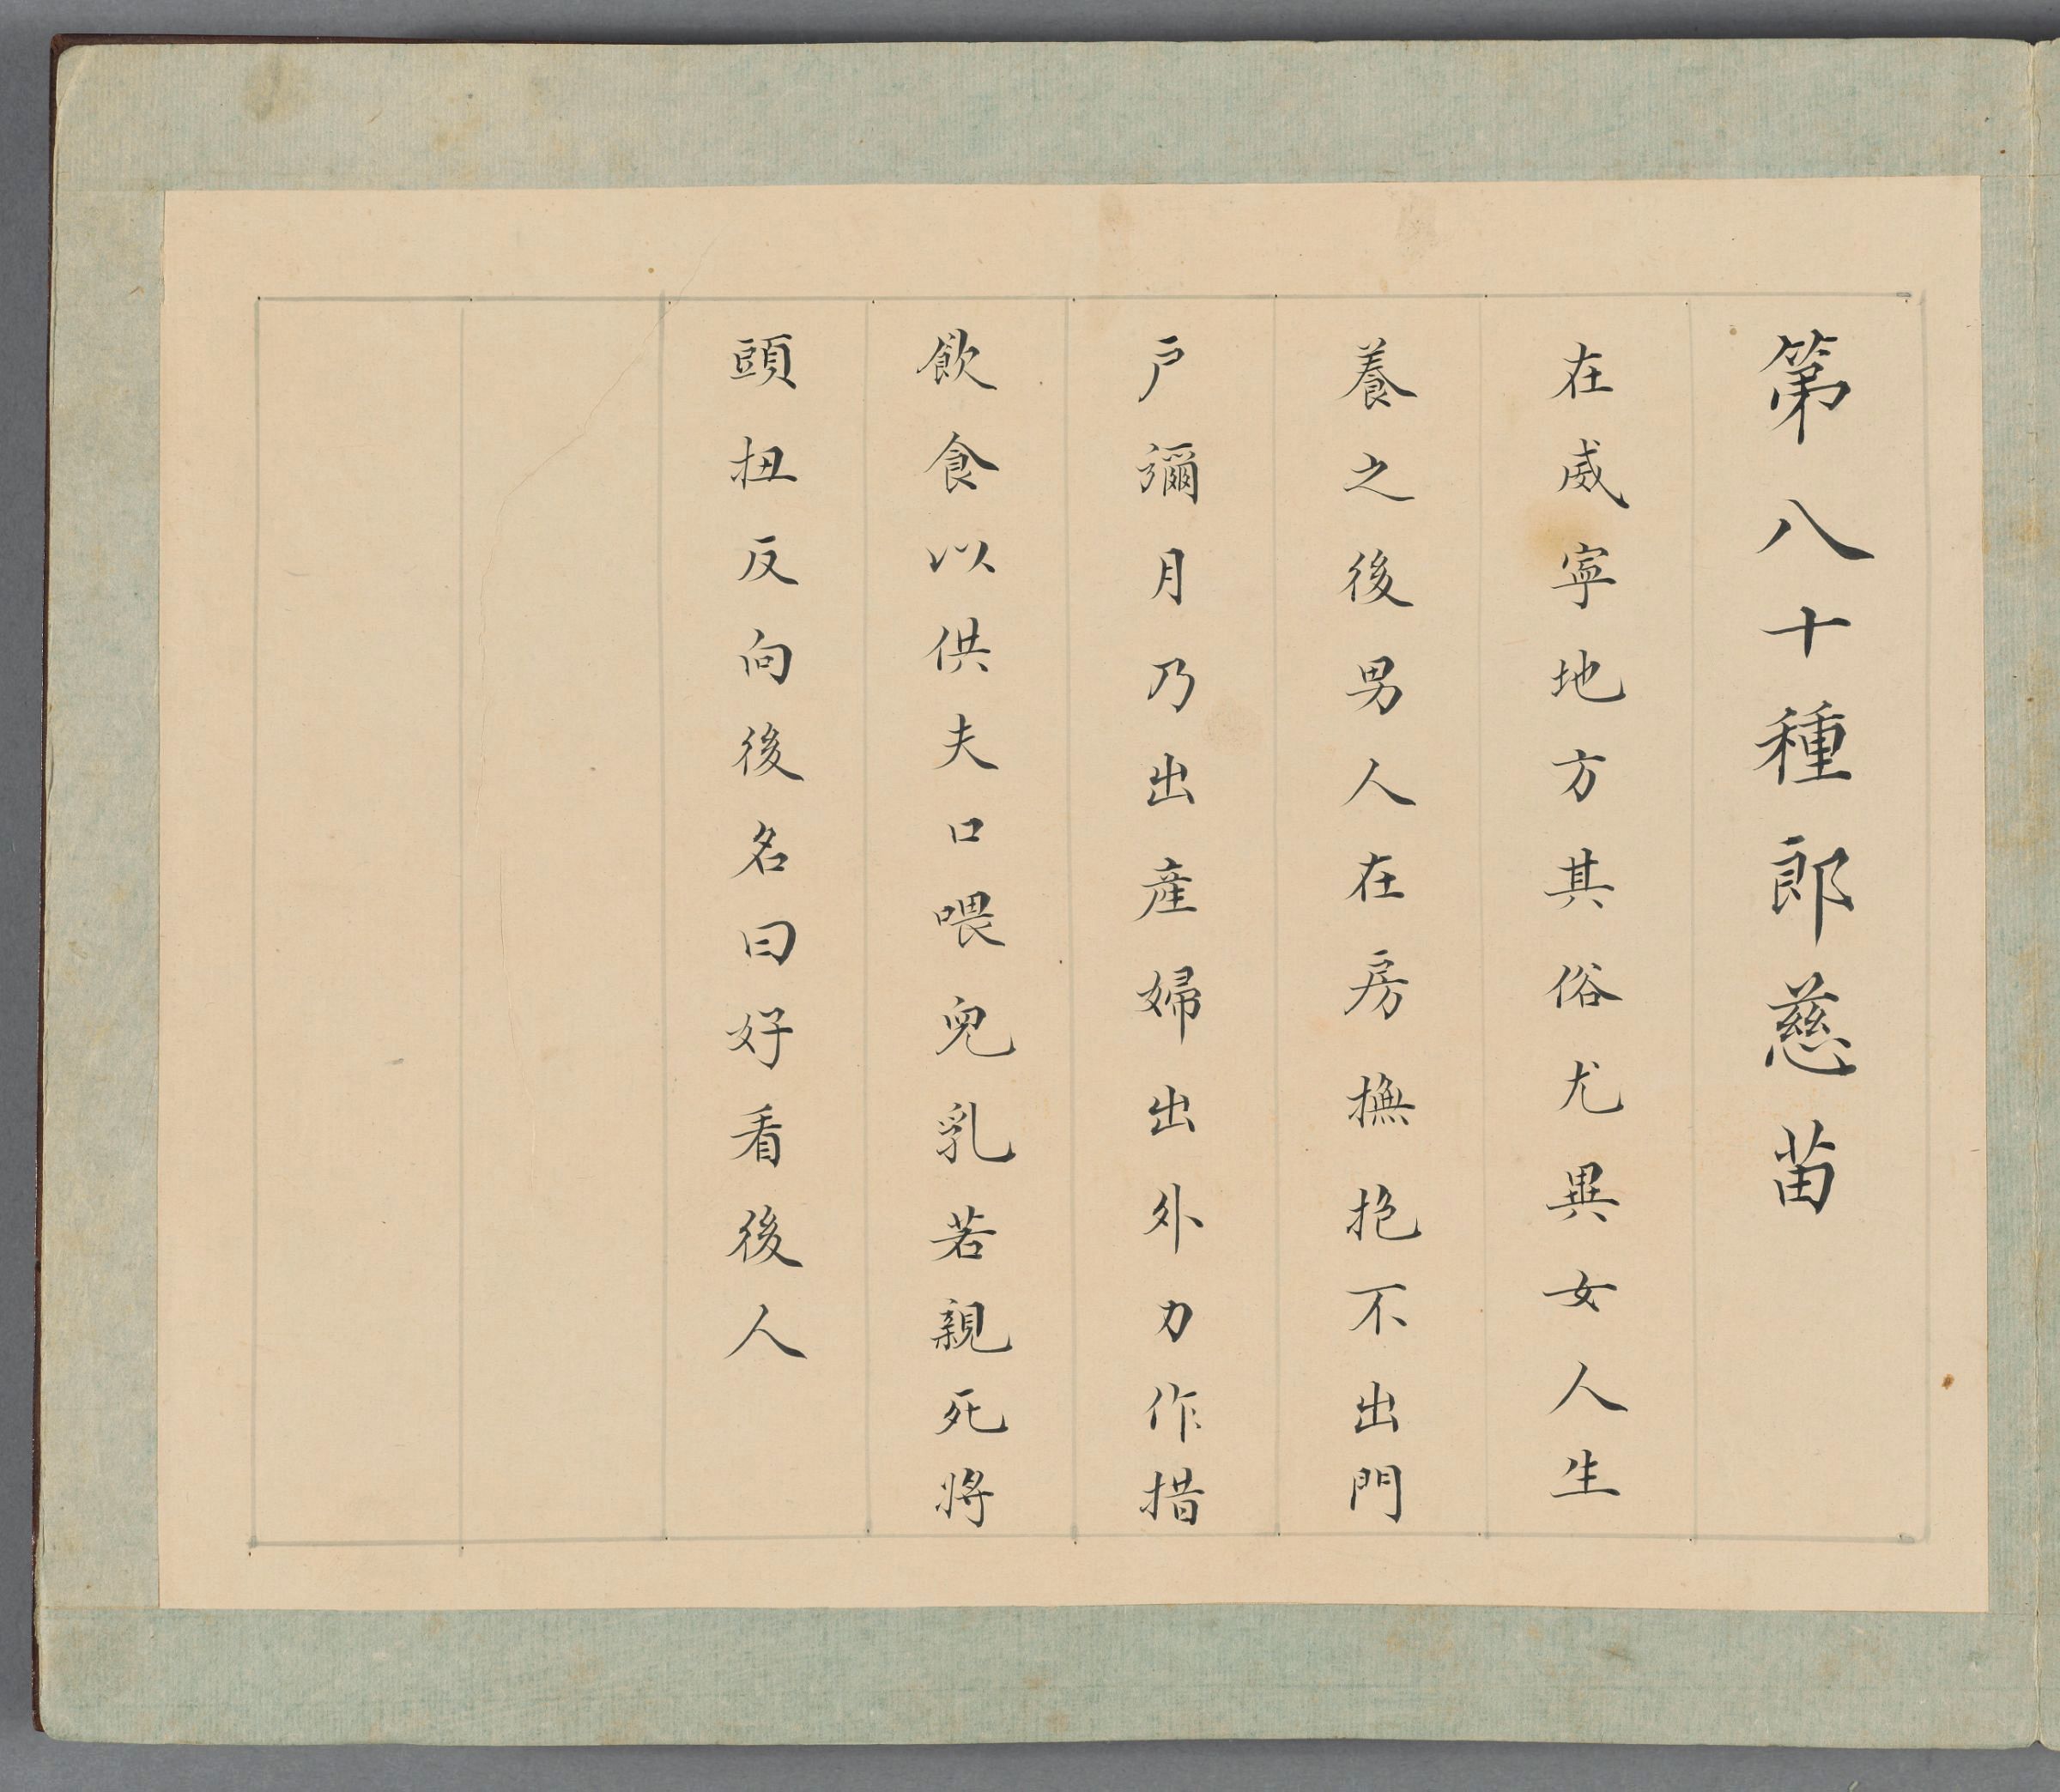 第八十種郎慈苗
在威寧地方其俗尤異女人生
養之後男人在房撫抱不出門
戶彌月乃出產婦出外力作措
飲食以供夫口喂兒乳若親死將
頭扭反向後名曰好看後人